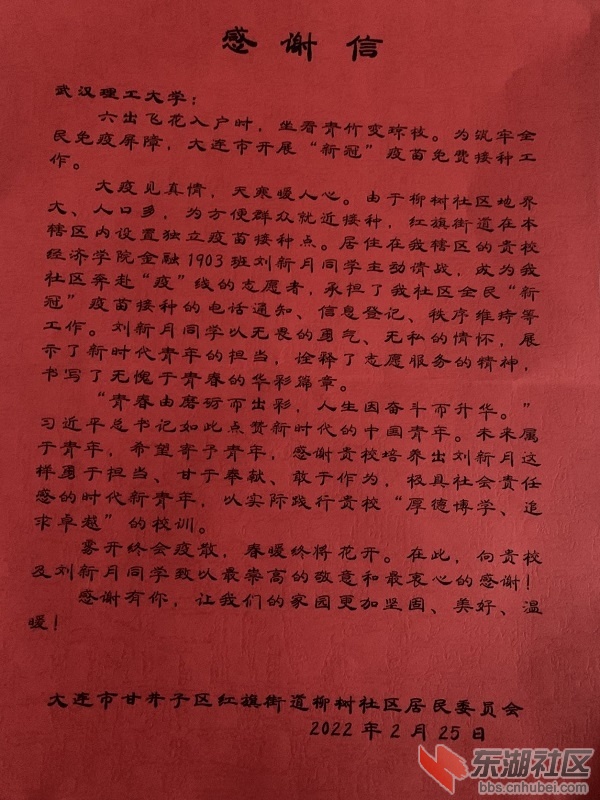 感谢信
武汉理工大学：
六出飞花入户时，坐看青竹变琼枝。为筑牢全
民免疫屏障，大连市开展“新冠”疫苗免费接种工
作。
大疫见真情，天寒暖人心。由于柳树社区地界
大、人口多，为方便群众就近接种，红旗街道在本
辖区内设置独立疫苗接种点。居住在我辖区的贵校
经济学院金融1903班刘新月同学主动请战，成为我
社区奔赴“疫”线的志愿者，承担了我社区全民“新
冠”疫苗接种的电话通知、信息登记、秩序维持等
工作。刘新月同学以无畏的勇气、无私的情怀，展
示了新时代青年的担当，诠释了志愿服务的精神，
书写了无愧于青春的华彩篇章。
“青春由磨砺而出彩，人生因奋斗而升华。”
习近平总书记如此点赞新时代的中国青年。未来属
于青年，希望寄予青年，感谢贵校培养出刘新月这
样勇于担当、甘于奉献、敢于作为，极具社会责任
感的时代新青年，以实际践行贵校“厚德博学、追
求卓越”的校训。
雾开终会疫散，春暖终将花开。在此，向贵校
及刘新月同学致以最崇高的敬意和最衷心的感谢！
感谢有你，让我们的家园更加坚固、美好、温
暖！
大连市甘井子区红旗街道柳树社区居民委员会
2022年2月25日
东湖社区
bbs.cnhubei.com